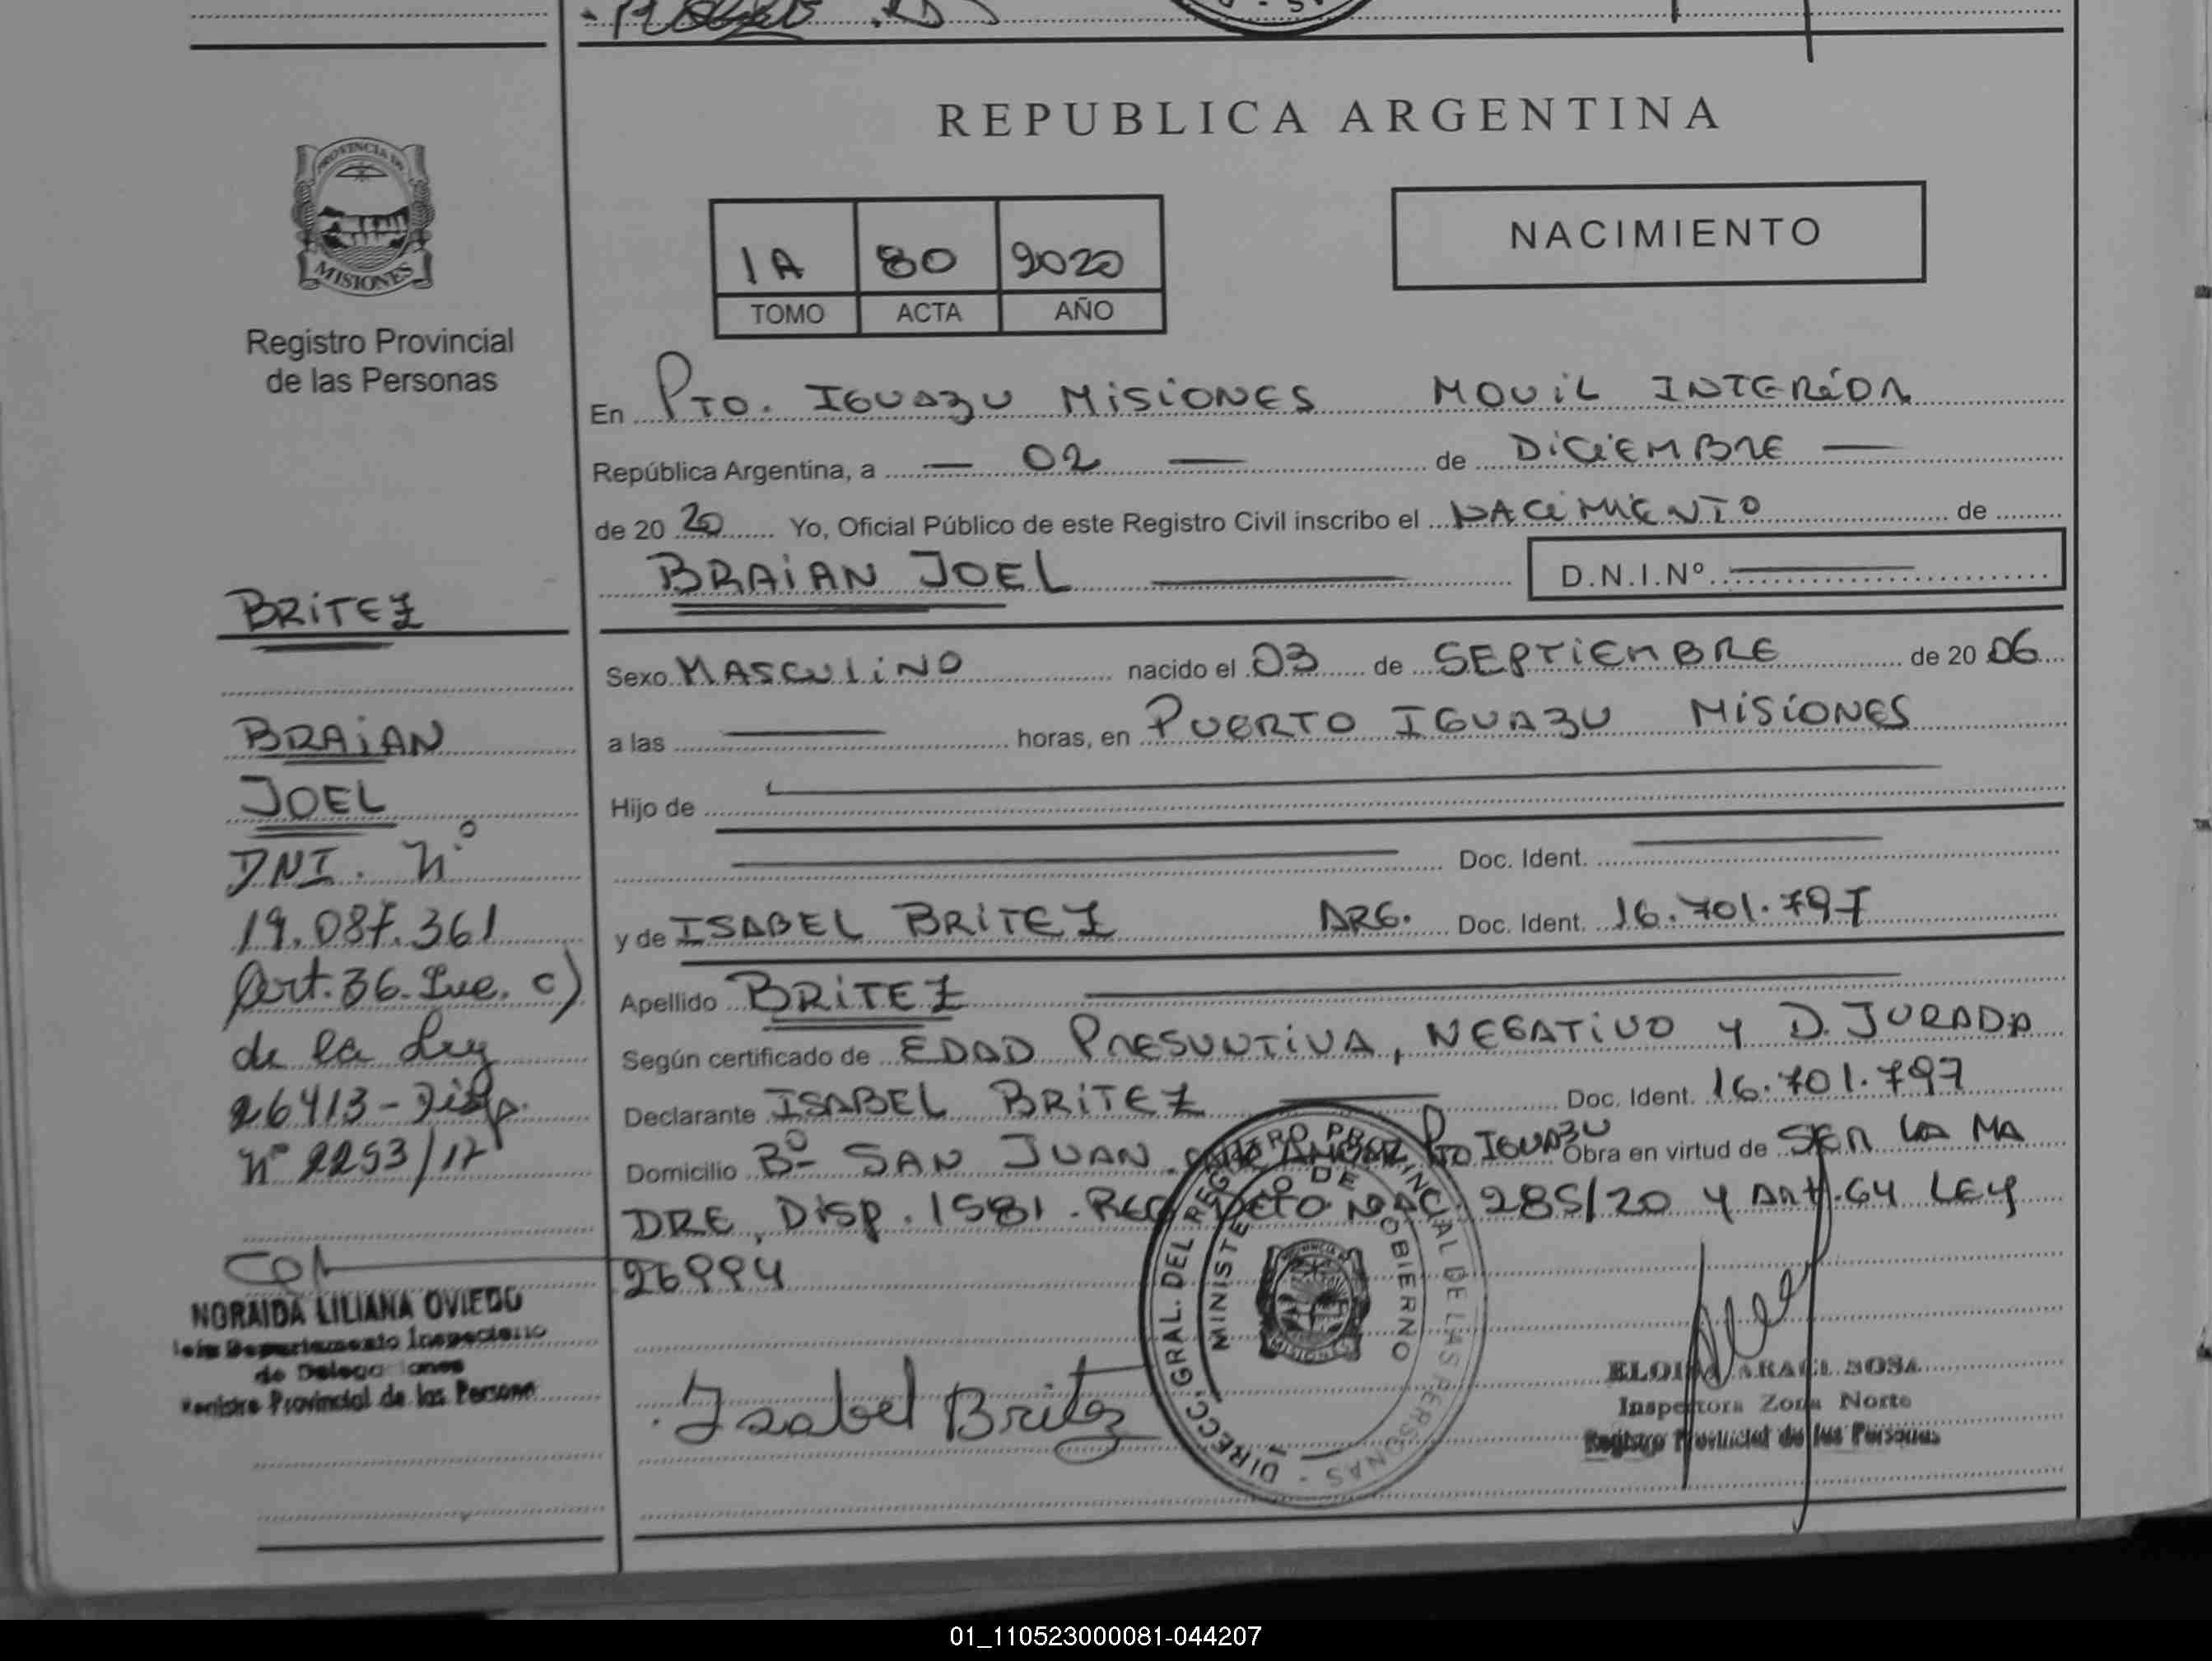 REPUBLICA ARGENTINA
PROVINCIA DE
MISIONES
Registro Provincial
de las Personas
NACIMIENTO
1A 80 2020
TOMO ACTA AÑO
En Pto. IGUAZU MISIONES MOVIL INTERIOR
República Argentina, a — 02 — de DICIEMBRE —
de 20 20 Yo, Oficial Público de este Registro Civil inscribo el NACIMIENTO de
BRAIAN JOEL D.N.I.Nº
Sexo MASCULINO nacido el 03 de SEPTIEMBRE de 20 06
a las horas, en PUERTO IGUAZU MISIONES
Hijo de
Doc. Ident.
y de ISABEL BRITEZ ARG. Doc. Ident. 16.701.797
Apellido BRITEZ
Según certificado de EDAD PRESUNTIVA, NEGATIVO y D. JURADA
Declarante ISABEL BRITEZ Doc. Ident. 16.701.797
Domicilio Bº SAN JUAN Pto IGUAZU Obra en virtud de SER LA MA
DRE, DISP. 1581. Dcto NAC. 285/20 y Art. 64 LEY
26994
Isabel Britez
BRITEZ
BRAIAN
JOEL
DNI. Nº
19.087.361
Art. 36. Inc. c)
de la Ley
26413 - Disp.
Nº 2253/17
NORAIDA LILIANA OVIEDO
Departamento
de
Registro Provincial de las
DIRECC. GRAL. DEL REGISTRO PROVINCIAL DE LAS PERSONAS
MINISTERIO DE GOBIERNO
MISIONES
SOSA
Inspectora Zona Norte
Registro Provincial de las Personas
01_110523000081-044207